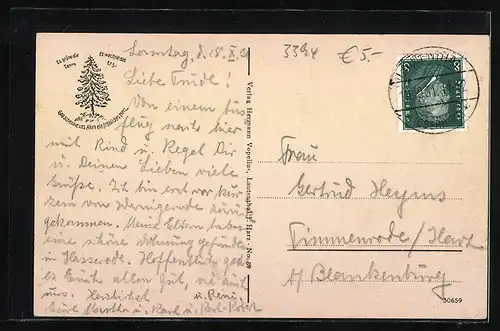 Es grüne die Tanne
Es wachse das Erz
Gott schenke uns Allen ein fröhliches Herz
Sonntag, d. 18.X.31
Liebe Trudl!
Von einem Aus
flug nach hier
mit Kind u. Kegel Dir
u. Deinen Lieben viele
Grüße. Ich bin erst vor kur
zem von Wernigerode zurück
gekommen. Meine Eltern haben
eine schöne Wohnung gefunden
in Hasserode. Hoffentlich geht
es Euch allen gut, wie auch
uns. Herzlichst
u. Karl u. Karl-Robert
Verlag Hermann Vopelius, Lautenthal i. Harz - No. 89
3394
€ 5.-
Frau
Gertrud Heyms
Timmenrode/Harz
b/ Blankenburg
30659